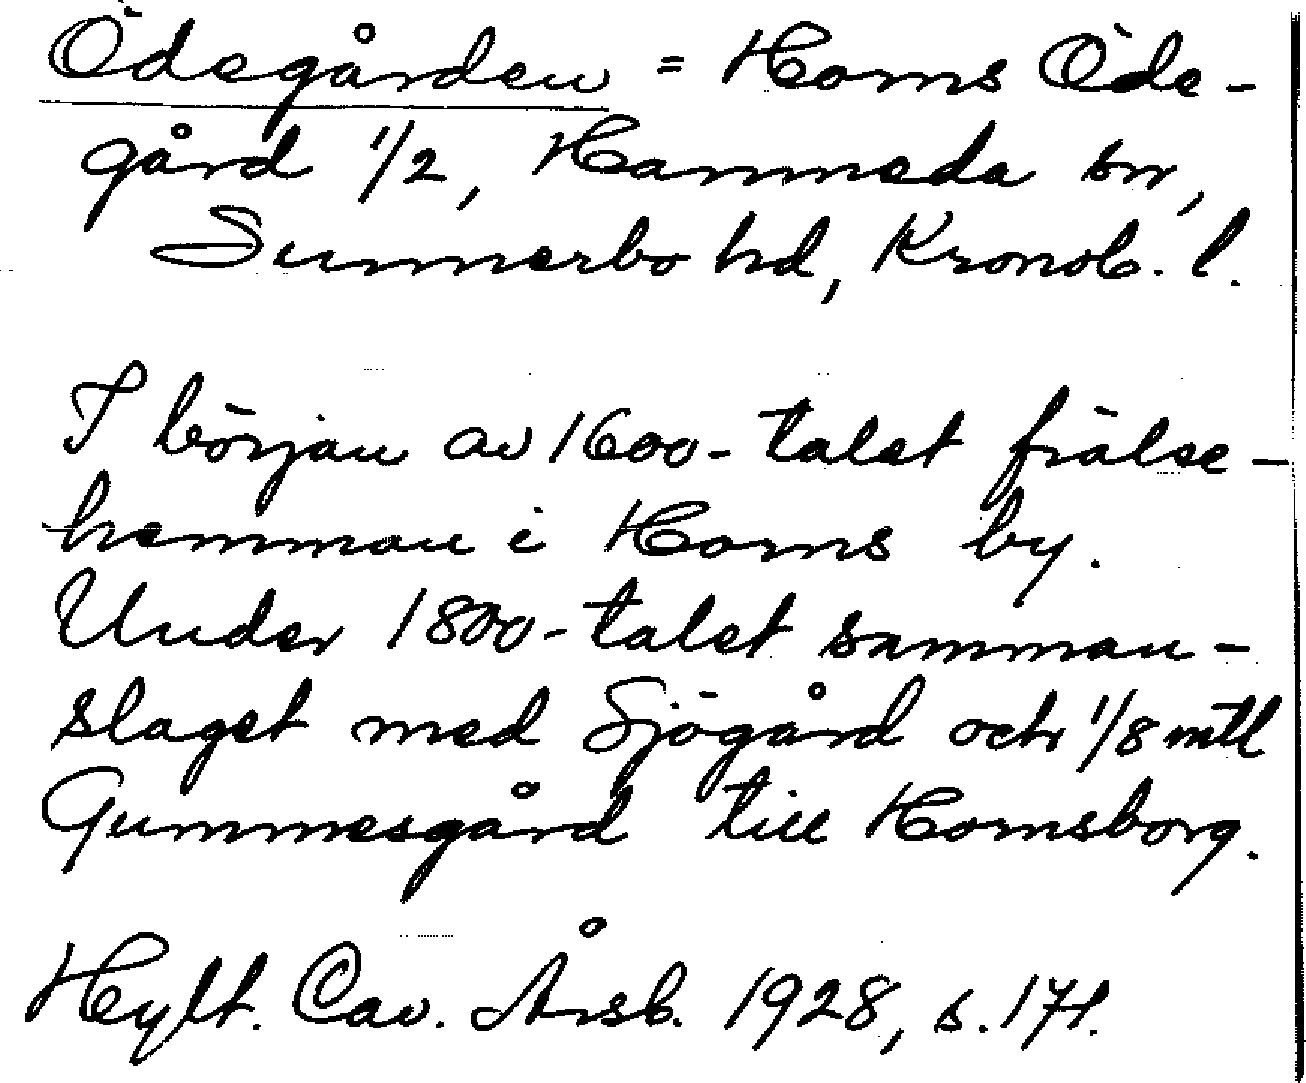 Ödegården = Horns Öde-
gård 1/2, Hamneda sn,
Sunnerbo hd, Kronob. l.
I början av 1600-talet frälse-
hemman i Horns by.
Under 1800-talet samman-
slaget med Sjögård och 1/8 mtl
Gummesgård till Hornsborg.
Hylt. Cav. Årsb. 1928, s. 171.